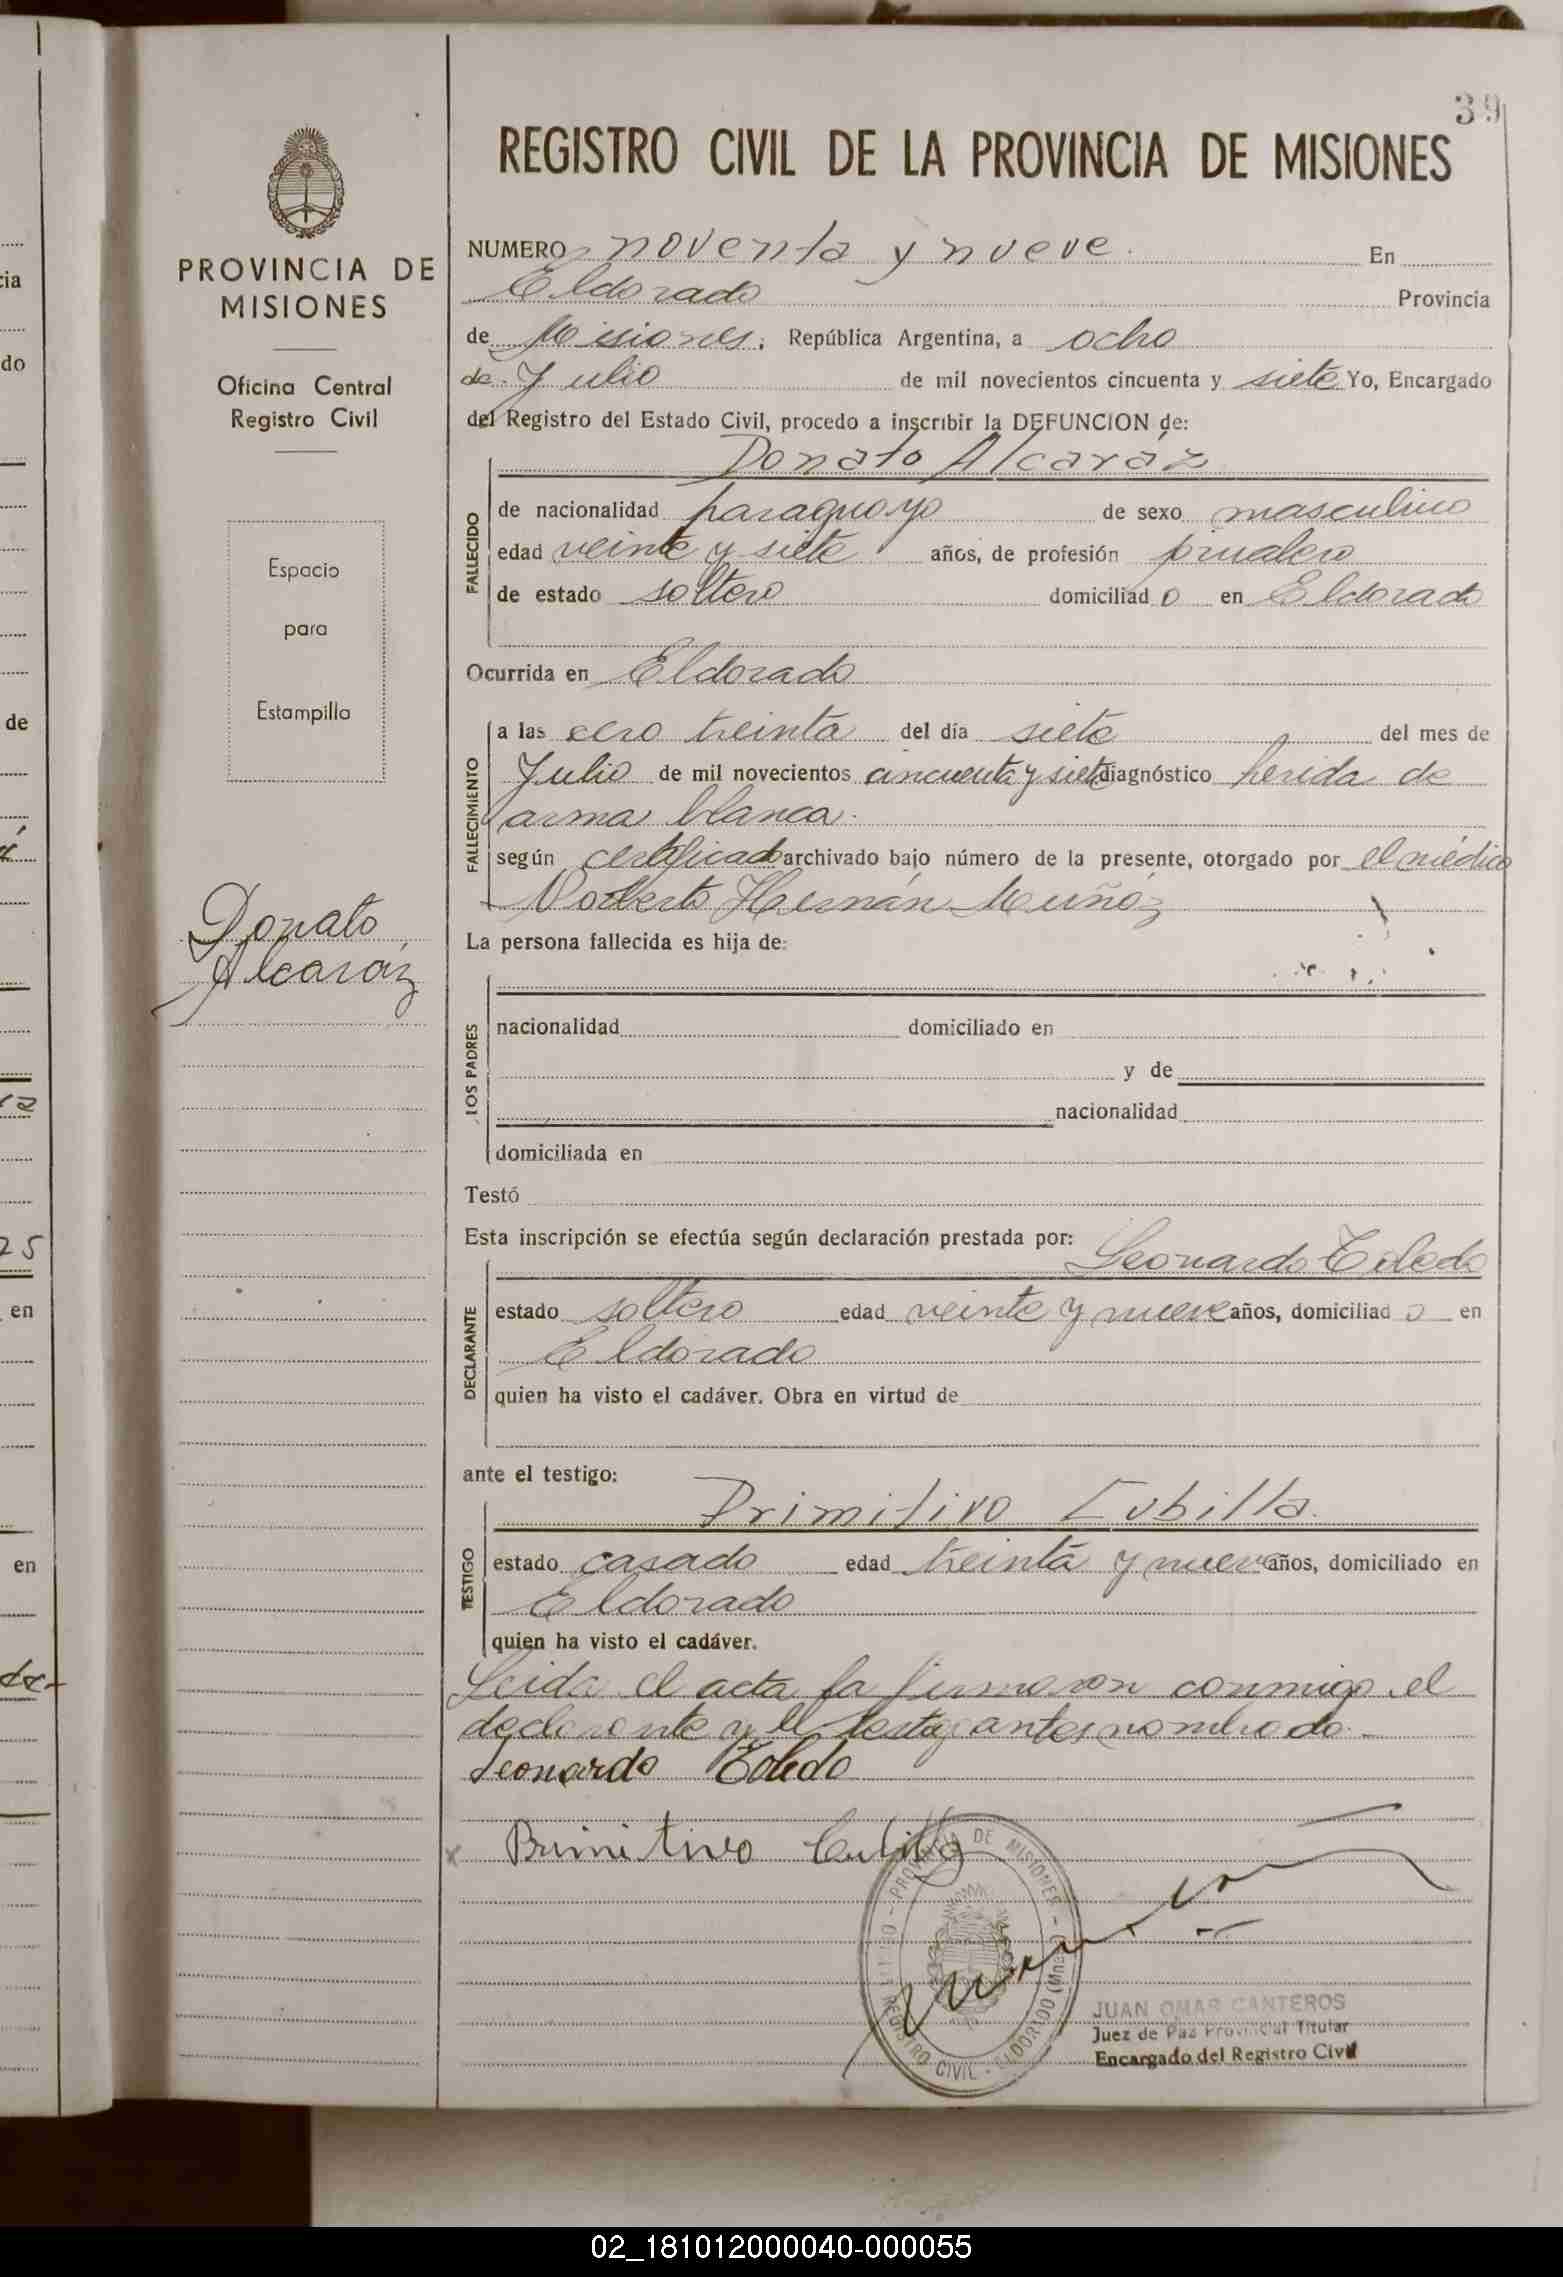 39
REGISTRO CIVIL DE LA PROVINCIA DE MISIONES
PROVINCIA DE
MISIONES
Oficina Central
Registro Civil
Espacio
para
Estampilla
Donato
Alcaráz
NUMERO noventa y nueve. En
Eldorado Provincia
de Misiones, República Argentina, a ocho
de Julio de mil novecientos cincuenta y siete Yo, Encargado
del Registro del Estado Civil, procedo a inscribir la DEFUNCION de:
Donato Alcaráz
FALLECIDO
de nacionalidad paraguayo de sexo masculino
edad veinte y siete años, de profesión
de estado soltero domiciliado en Eldorado
Ocurrida en Eldorado
FALLECIMIENTO
a las cero treinta del día siete del mes de
Julio de mil novecientos cincuenta y siete diagnóstico herida de
arma blanca.
según certificado archivado bajo número de la presente, otorgado por el médico
Norberto Hernán Muñóz
La persona fallecida es hija de:
LOS PADRES
nacionalidad domiciliado en
y de
nacionalidad
domiciliada en
Testó
Esta inscripción se efectúa según declaración prestada por:
Leonardo Toledo
DECLARANTE
estado soltero edad veinte y nueve años, domiciliado en
Eldorado
quien ha visto el cadáver. Obra en virtud de
ante el testigo:
Primitivo Cubilla.
TESTIGO
estado casado edad treinta y nueve años, domiciliado en
Eldorado
quien ha visto el cadáver.
Leida el acta la firmaron conmigo el
declarante y el testigo antes nombrado.
Leonardo Toledo
Primitivo Cubilla
PROVINCIA DE MISIONES
REGISTRO CIVIL - ELDORADO (Mnes.)
JUAN OMAR CANTEROS
Juez de Paz Provincial Titular
Encargado del Registro Civil
02_181012000040-000055